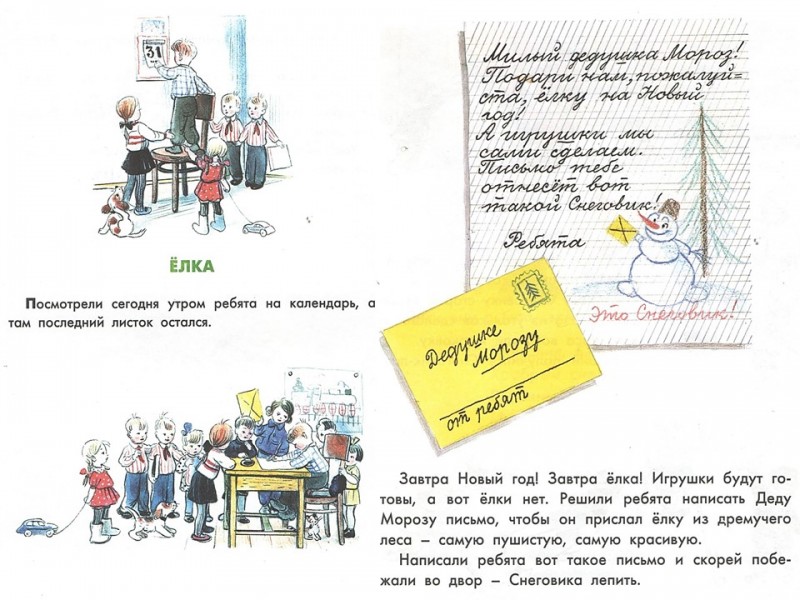 31
ЁЛКА
Посмотрели сегодня утром ребята на календарь, а
там последний листок остался.
Милый дедушка Мороз!
Подари нам, пожалуй=
ста, ёлку на Новый
год!
А игрушки мы
сами сделаем.
Письмо тебе
отнесёт вот
такой Снеговик!
Ребята
Это Снеговик!
Дедушке
Морозу
от ребят
Завтра Новый год! Завтра ёлка! Игрушки будут го-
товы, а вот ёлки нет. Решили ребята написать Деду
Морозу письмо, чтобы он прислал ёлку из дремучего
леса – самую пушистую, самую красивую.
Написали ребята вот такое письмо и скорей побе-
жали во двор – Снеговика лепить.